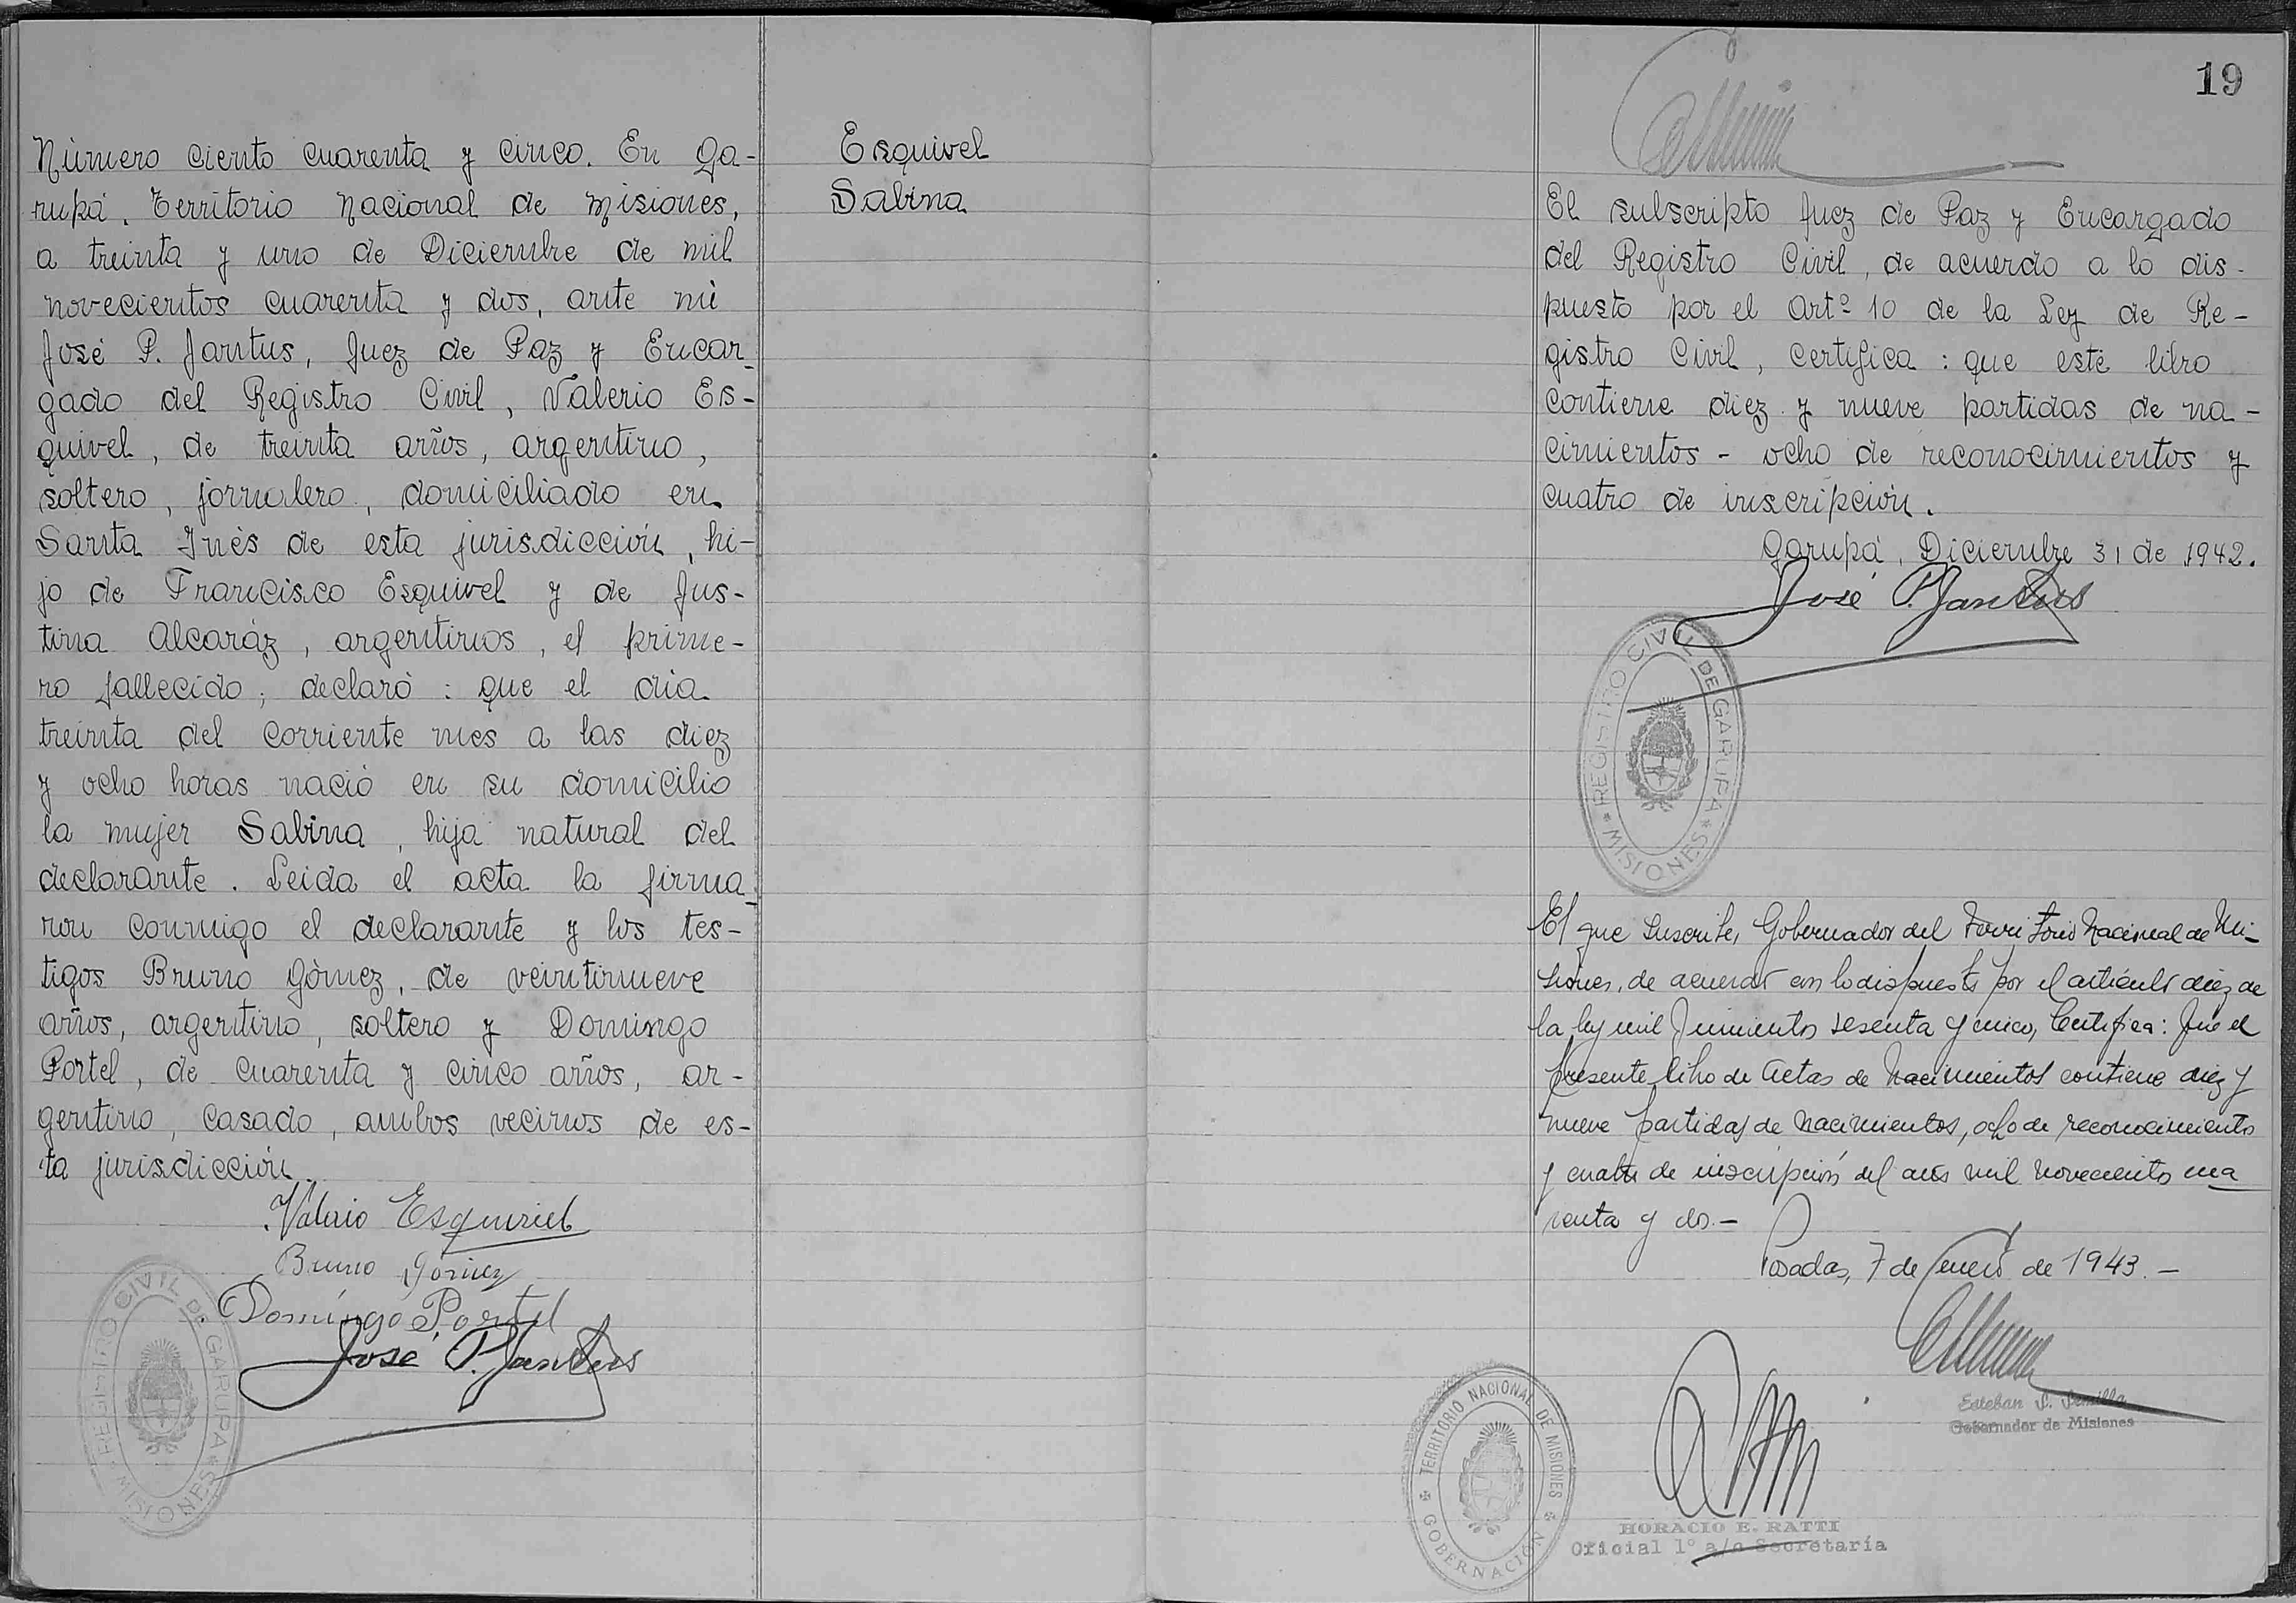 Número ciento cuarenta y cinco. En Ga-
rupá, Territorio Nacional de Misiones,
a treinta y uno de Diciembre de mil
novecientos cuarenta y dos, ante mí
José P. Jantus, Juez de Paz y Encar_
gado del Registro Civil, Valerio Es-
quivel, de treinta años, argentino,
soltero, jornalero, domiciliado en
Santa Inés de esta jurisdicción, hi-
jo de Francisco Esquivel y de Jus-
tina Alcaráz, argentinos, el prime-
ro fallecido; declaró: que el día
treinta del corriente mes a las diez
y ocho horas nació en su domicilio
la mujer Sabina, hija natural del
declarante. Leida el acta la firma_
ron conmigo el declarante y los tes-
tigos Bruno Gómez, de veintinueve
años, argentino, soltero y Domingo
Portel, de cuarenta y cinco años, ar-
gentino, casado, ambos vecinos de es-
ta jurisdicción.
Valerio Esquivel
Bruno Gómez
Domíngo Portel
José P. Jantus
REGISTRO CIVIL DE GARUPA
* MISIONES *
Esquivel
Sabina
19
El subscripto Juez de Paz y Encargado
del Registro Civil, de acuerdo a lo dis-
puesto por el Artº 10 de la Ley de Re-
gistro Civil, certifica: que este libro
contiene diez y nueve partidas de na-
cimientos - ocho de reconocimientos y
cuatro de inscripción.
Garupá, Diciembre 31 de 1942.
José P. Jantus
REGISTRO CIVIL DE GARUPA
* MISIONES *
El que suscribe, Gobernador del Territorio Nacional de Mi-
siones, de acuerdo con lo dispuesto por el artículo diez de
la ley mil quinientos sesenta y cinco, Certifica: Que el
presente libro de Actas de Nacimientos contiene diez y
nueve partidas de Nacimientos, ocho de reconocimiento
y cuatro de inscripción del año mil novecientos cua_
renta y dos.-
Posadas, 7 de Enero de 1943.-
Esteban
Gobernador de Misiones
TERRITORIO NACIONAL DE MISIONES
GOBERNACIÓN
HORACIO E. RATTI
Oficial 1º a/c Secretaría